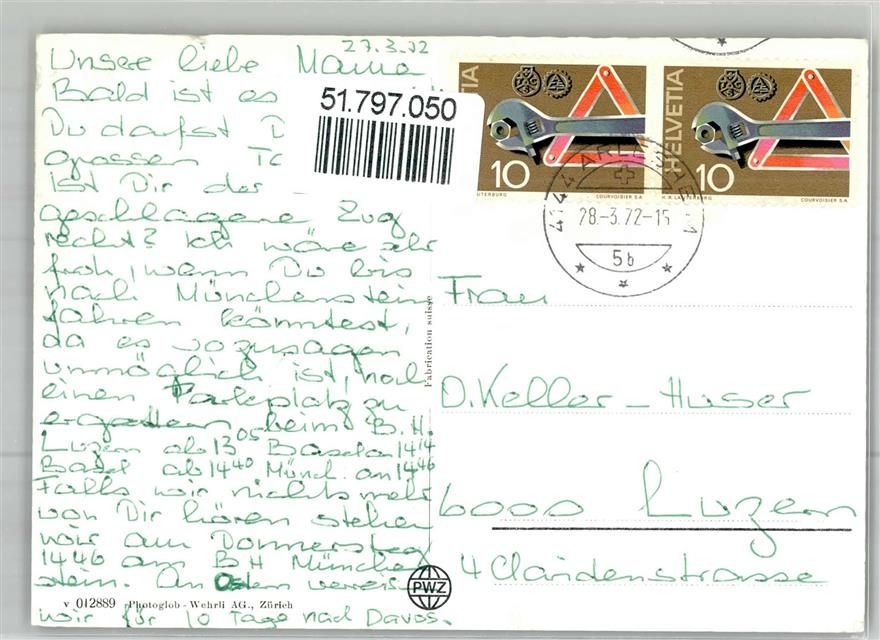 27.3.72
Unsere liebe Mama
Bald ist es
Du darfst D
grossen
ist Dir der
geschlagene Zug
recht? Ich wäre sehr
froh, wenn Du bis
nach Münchenstein
fahren könntest,
da es sozusagen
unmöglich ist, noch
einen Parkplatz zu
ergattern beim B.H.
Luzern ab 13 05 Basel an 14 14
Basel ab 14 40 Münch. an 14 46
Falls wir nichts mehr
von Dir hören stehen
wir am Donnerstag
14 46 am BH München
stein. An Ostern verreisen
wir für 10 Tage nach Davos.
v 012889 Photoglob - Wehrli AG., Zürich
51.797.050
Fabrication suisse
PWZ
HELVETIA
10
COURVOISIER S.A.
HELVETIA
10
COURVOISIER S.A.
4144 ARLESHEIM 1
28.-3.72-15
5b
Frau
O. Keller - Huser
6000 Luzern
4 Claridenstrasse